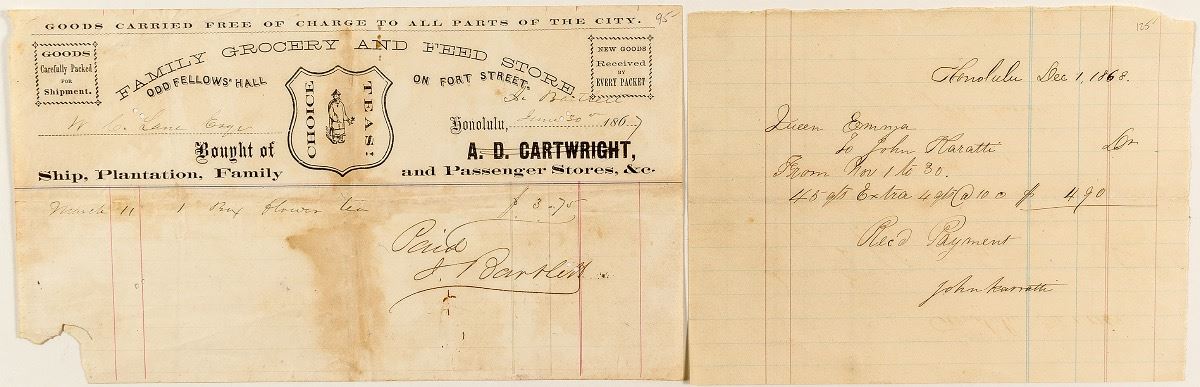 GOODS CARRIED FREE OF CHARGE TO ALL PARTS OF THE CITY.
95
GOODS
Carefully Packed
FOR
Shipment.
FAMILY GROCERY AND FEED STORE,
ODD FELLOWS' HALL
ON FORT STREET.
NEW GOODS
Received
BY
EVERY PACKET
CHOICE
TEAS!
W. C. Lane Esqr
Honolulu, June 30th 1867
Bought of
A. D. CARTWRIGHT,
Ship, Plantation, Family
and Passenger Stores, &c.
March 11 1 Box flower tea $ 3.75
Paid
J. Bartlett
125
Honolulu Dec 1, 1868.
Queen Emma
To John Karatti Dr
From Nov 1 to 30.
45 qts Extra 4 qts @ 10 c $ 4 90
Rec'd Payment
John Karratti